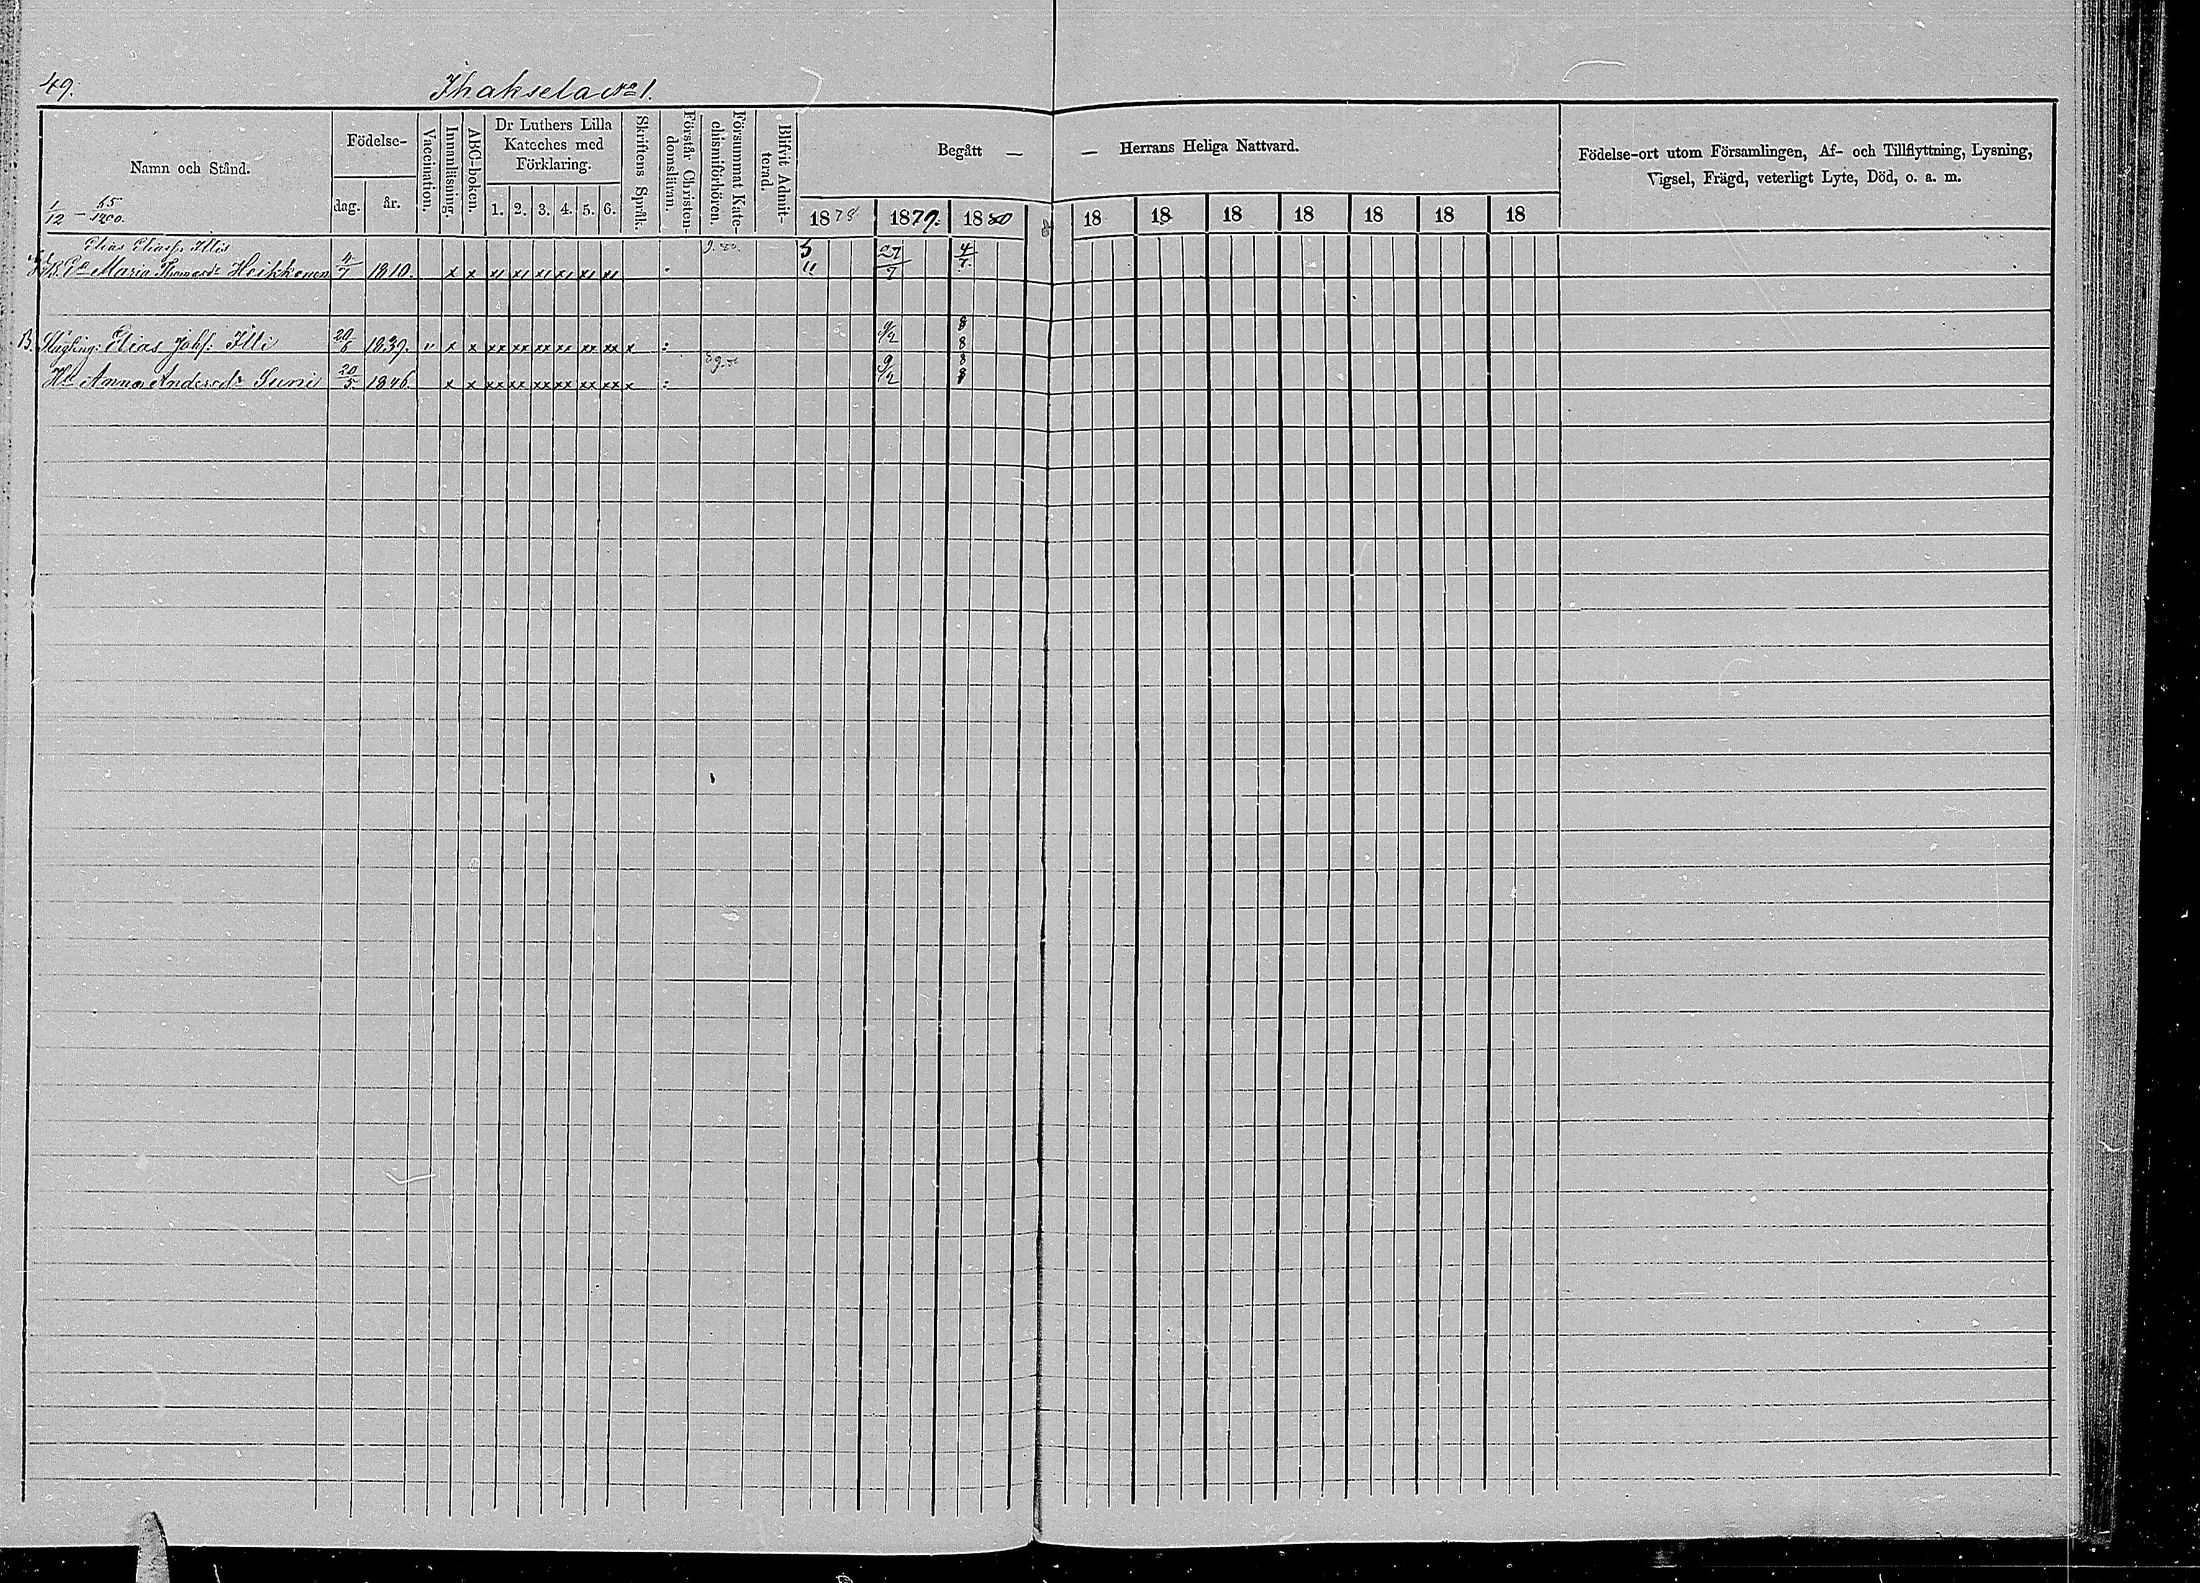 49. Ihaksela No 1.
Namn och Stånd.
1/12 — 65/1200.
Födelse-
dag. år.
Vaccination.
Innanläsning.
ABC-boken.
Dr Luthers Lilla Kateches med Förklaring.
1. 2. 3. 4. 5. 6.
Skriftens Språk.
Förstår Christendomslären.
Försummat Katechismiförhören.
Blifvit Admitterad.
Begått — — Herrans Heliga Nattvard.
1878 1879. 1880 18 18 18 18 18 18 18
Födelse-ort utom Församlingen, Af- och Tillflyttning, Lysning,
Vigsel, Frägd, veterligt Lyte, Död, o. a. m.
Elias Eliass. Illis
Maria Thomasdr Heikkonen 4/7 1810. x x xx xx xx xx xx xx . 5 11 27/7 4/7.
B. Elias Johs. Illi 20/6 1839. " x x xx xx xx xx xx xx x : 9/2 8 8
Hu Anna Andersdr Suni 20/5 1846. x x xx xx xx xx xx xx x : 9/2 8 8